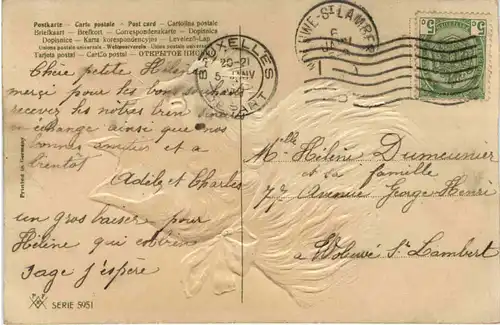 Postkarte – Carte postale – Post card – Cartolina postale
Briefkaart – Brefkort – Correspondenzkarte – Dopisnice
Dopisnica – Karta korespondencyjna – Levelező-Lap
Unione postale universale – Weltpostverein – Union postale universelle
Tarjeta postal – Cartão postal – ОТКРЫТОЕ
Chère petite Hélène
merçi pour les bons souhaits
recever les nôtres bien
échange ainsi que nos
bonnes amitiés et a
bientot
Adèle et Charles
un gros baiser pour
Hélène qui est bien
sage j'espère
Printed in Germany
SERIE 5951
BRUXELLES
20-21
5
DÉPART
WOLUWE-ST LAMBERT
6
5 5
Melle Hélène Dumeunier
et la famille
77 Avenue George Henri
à Woluwé St Lambert